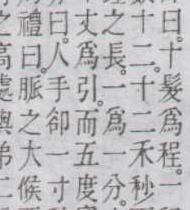 曰。十髮爲程。一
十二。十二禾秒
之長。爲一分。
丈爲引。而五度
曰。人手卻一寸
禮曰。脈之大候
之高處與弟二